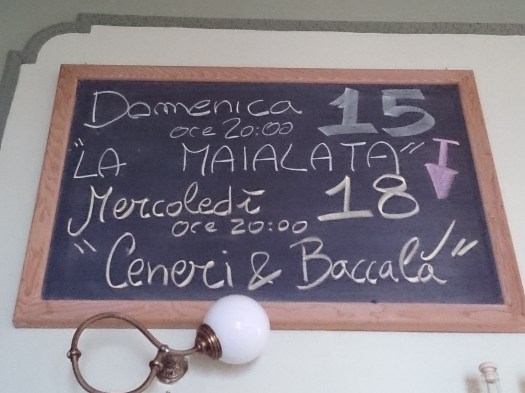 Domenica 15
ore 20:00
"LA MAIALATA"
Mercoledì 18
ore 20:00
"Ceneri & Baccalà"